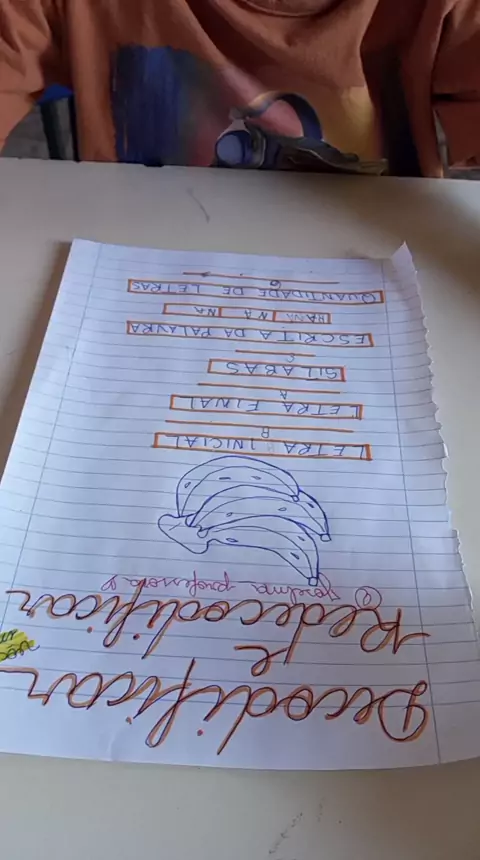 Decodificar
e
Redecodificar
professora
LETRA INICIAL
B
LETRA FINAL
A
SÍLABAS
3
ESCRITA DA PALAVRA
BA NA NA
QUANTIDADE DE LETRAS
6